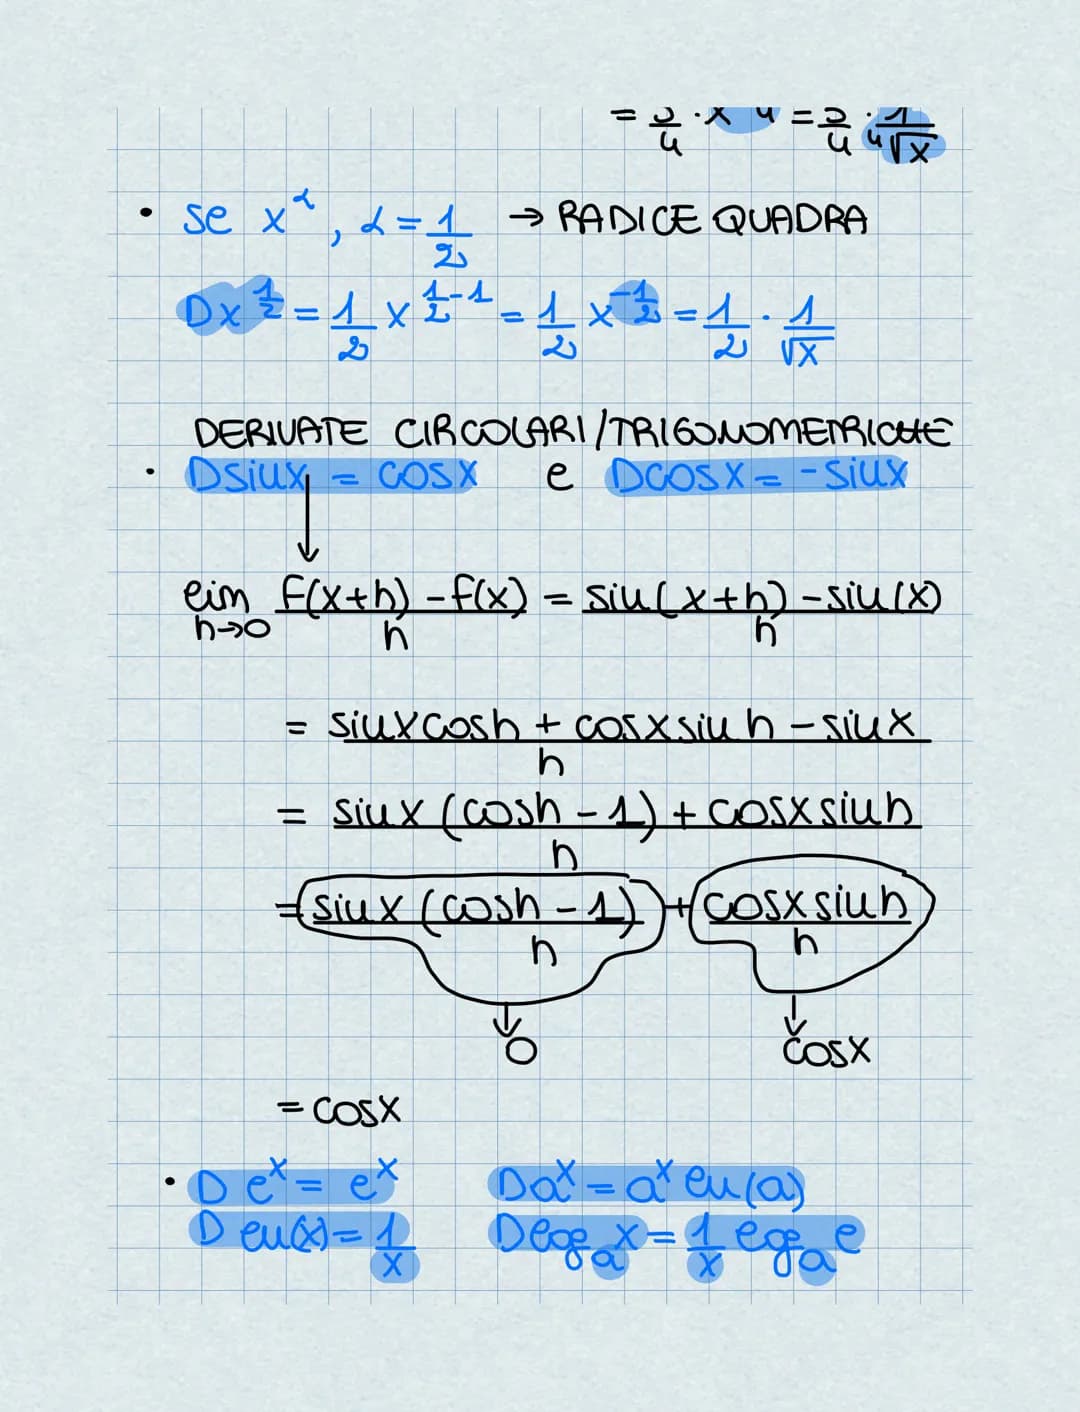 = 3/4 · x 4 = 3/4 · 1/⁴√x
• se x^α, α = 1/2 → RADICE QUADRA
Dx^1/2 = 1/2 x^1/2-1 = 1/2 x^-1/2 = 1/2 · 1/√x
DERIVATE CIRCOLARI/TRIGONOMETRICHE
• Dsinx = cosx e Dcosx = -sinx
lim h→0 f(x+h) - f(x) / h = sin(x+h) - sin(x) / h
= sinxcosh + cosxsinh - sinx / h
= sinx (cosh - 1) + cosxsinh / h
= sinx (cosh - 1) / h + cosxsinh / h
↓ 0 ↓ cosx
= cosx
• D e^x = e^x Da^x = a^x ln(a)
D ln(x) = 1/x Dlog_a x = 1/x log_a e